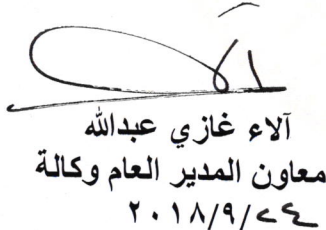 آلاء غازي عبدالله
معاون المدير العام وكالة
٢٠١٨/٩/٢٤